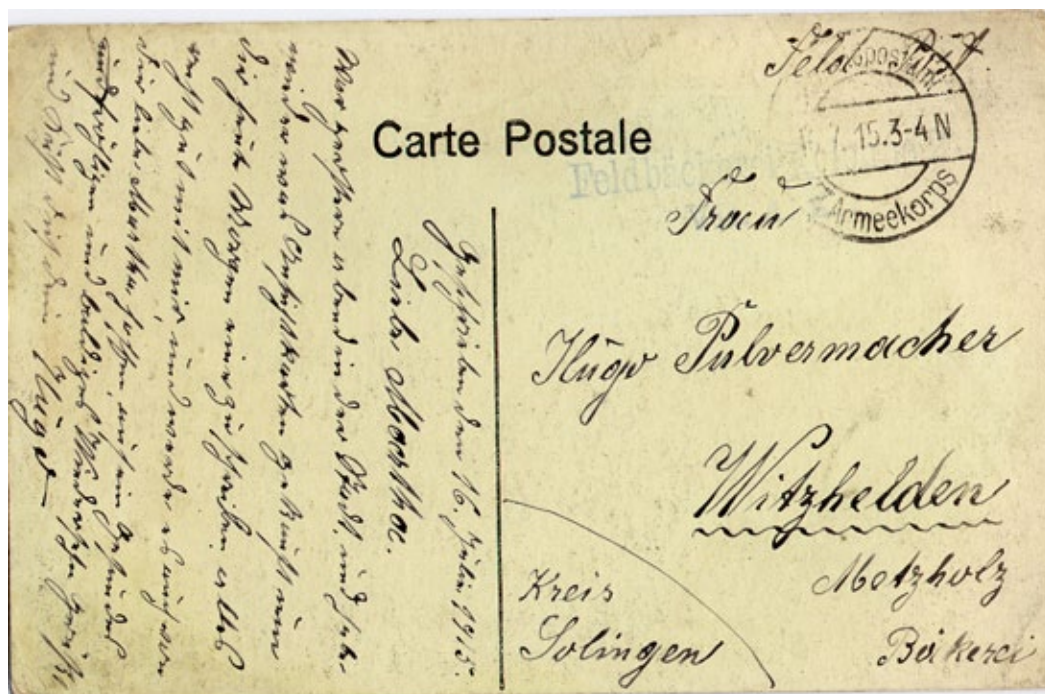 Feldpost
Carte Postale
Feldpost
16.7.15.3-4 N
Armeekorps
Feldbäckerei
Frau
Hugo Pulvermacher
Witzhelden
Metzholz
Bäkerei
Kreis
Solingen
Geschrieben den 16. Julie 1915.
Liebe Martha.
War gestern abend in der Stadt, und habe
wieder mal Ansichtskarten gekauft um
dir heute Morgen eine zu schreiben. alles
recht gut mit mir, und werde es auch von
dir liebe Martha hoffen, auf ein gesundes
und fröhliges und baldiges Wiedersehn grüßt
und küßt dich dein Hugo